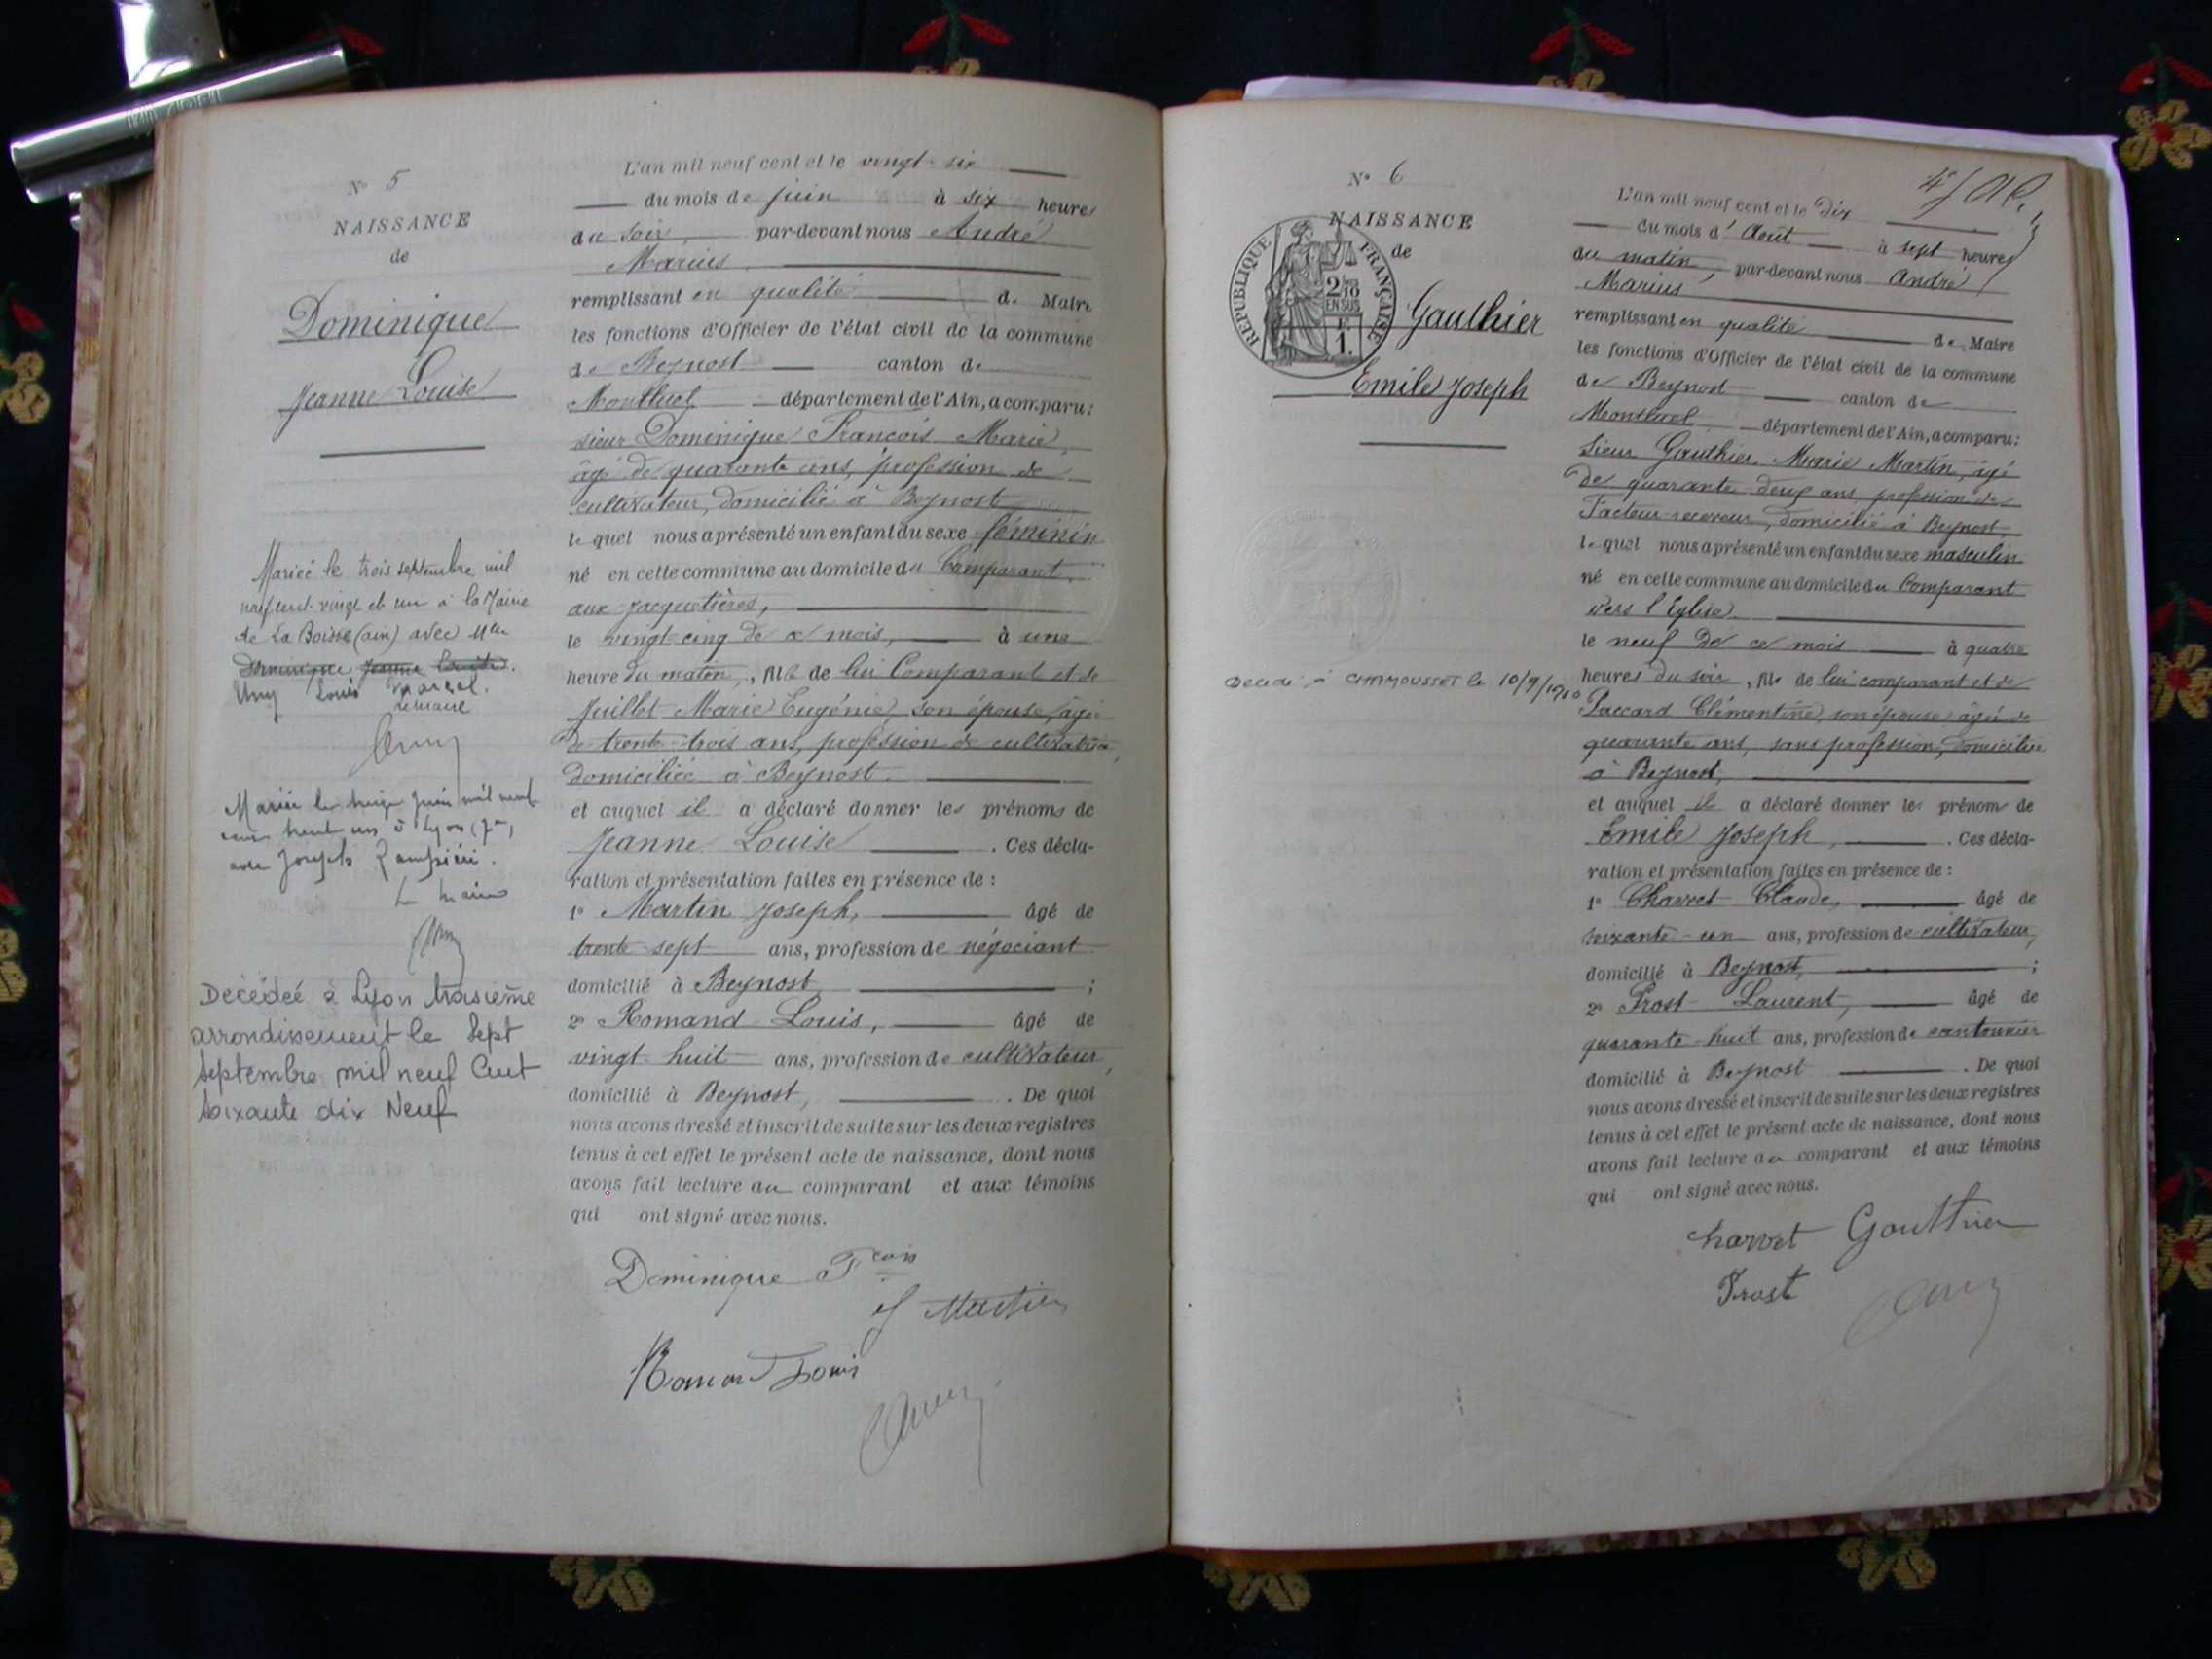 N° 5
NAISSANCE
de
Dominique
Jeanne Louise
Mariée le trois septembre mil
neuf cent vingt et un à la Mairie
de La Boisse (ain) avec
Dominique Jeanne Louise.
Louis Marcel.
Le maire
Mariée le juin mil neuf
cent trente un à Lyon
avec Joseph
Le maire
Décédée à Lyon troisième
arrondissement le Sept
Septembre mil neuf Cent
Soixante dix Neuf
L'an mil neuf cent et le vingt-six
du mois de juin à six heures
du soir, par-devant nous André
Marius
remplissant en qualité de Maire
les fonctions d'Officier de l'état civil de la commune
de Beynost canton de
Montluel département de l'Ain, a comparu:
sieur Dominique François Marie,
âgé de quarante ans, profession de
cultivateur, domicilié à Beynost
lequel nous a présenté un enfant du sexe féminin
né en cette commune au domicile du Comparant
aux Jacquetières,
le vingt-cinq de ce mois, à une
heure du matin, fille de lui Comparant et de
Juillet Marie Eugénie, son épouse, âgée
de trente-trois ans, profession de cultivatrice,
domiciliée à Beynost.
et auquel il a déclaré donner les prénoms de
Jeanne Louise. Ces décla-
ration et présentation faites en présence de:
1° Martin Joseph, âgé de
trente-sept ans, profession de négociant
domicilié à Beynost;
2° Romand Louis, âgé de
vingt-huit ans, profession de cultivateur,
domicilié à Beynost,. De quoi
nous avons dressé et inscrit de suite sur les deux registres
tenus à cet effet le présent acte de naissance, dont nous
avons fait lecture au comparant et aux témoins
qui ont signé avec nous.
Dominique Fçois
J Martin
Romand Louis
N° 6
NAISSANCE
de
REPUBLIQUE FRANÇAISE
2/10
EN SUS
F.
1.
Gauthier
Emile Joseph
Décédé à le 10/9/1910
L'an mil neuf cent et le Dix
du mois d'Août à sept heures
du matin, par-devant nous André
Marius
remplissant en qualité de Maire
les fonctions d'Officier de l'état civil de la commune
de Beynost canton de
Montluel département de l'Ain, a comparu:
Sieur Gauthier Marie Martin, âgé
de quarante-deux ans, profession de
Facteur-receveur, domicilié à Beynost,
lequel nous a présenté un enfant du sexe masculin
né en cette commune au domicile du Comparant
vers l'Eglise
le neuf de ce mois à quatre
heures du soir, fils de lui comparant et de
Paccard Clémentine, son épouse âgée de
quarante ans, sans profession, domiciliée
à Beynost,
et auquel il a déclaré donner les prénoms de
Emile Joseph,. Ces décla-
ration et présentation faites en présence de:
1° Charvet Claude, âgé de
soixante-un ans, profession de cultivateur,
domicilié à Beynost,;
2° Prost Laurent, âgé de
quarante-huit ans, profession de cantonnier
domicilié à Beynost. De quoi
nous avons dressé et inscrit de suite sur les deux registres
tenus à cet effet le présent acte de naissance, dont nous
avons fait lecture au comparant et aux témoins
qui ont signé avec nous.
Charvet Gauthier
Prost